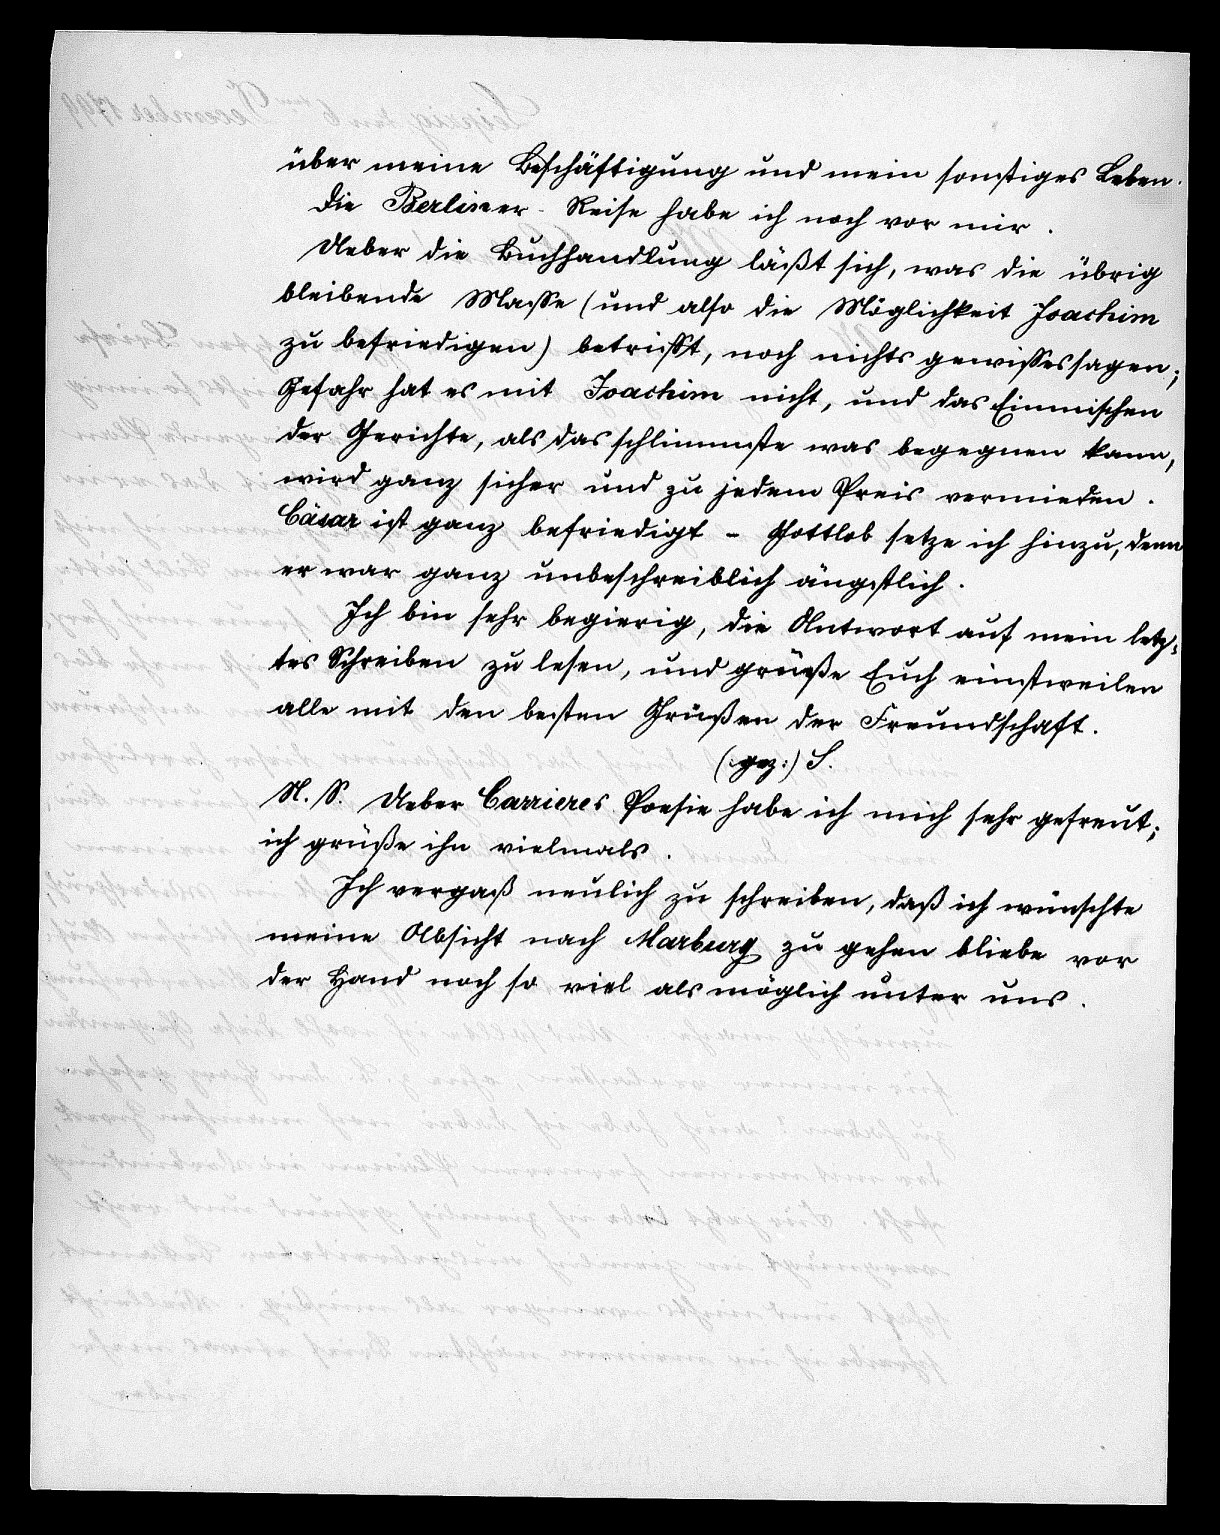 über meine Beschäftigung und mein sonstiges Leben.
Die Berliner-Reise habe ich noch vor mir.
Ueber die Buchhandlung läßt sich, was die übrig
bleibende Masse (und also die Möglichkeit Joachim
zu befriedigen) betrifft, noch nichts gewisses sagen;
Gefahr hat es mit Joachim nicht, und das Einmischen
der Gerichte, als das schlimmste was begegnen kann,
wird ganz sicher und zu jedem Preis vermieden.
Cäsar ist ganz befriedigt - Gottlob setze ich hinzu, denn
er war ganz unbeschreiblich ängstlich.
Ich bin sehr begierig, die Antwort auf mein letz-
tes Schreiben zu lesen, und grüße Euch einstweilen
alle mit den besten Grüßen der Freundschaft.
(gez:) S.
N. S. Ueber Carrieres Poesie habe ich mich sehr gefreut;
ich grüße ihn vielmals.
Ich vergaß neulich zu schreiben, daß ich wünschte
meine Absicht nach Marburg zu gehen bliebe vor
der Hand noch so viel als möglich unter uns.